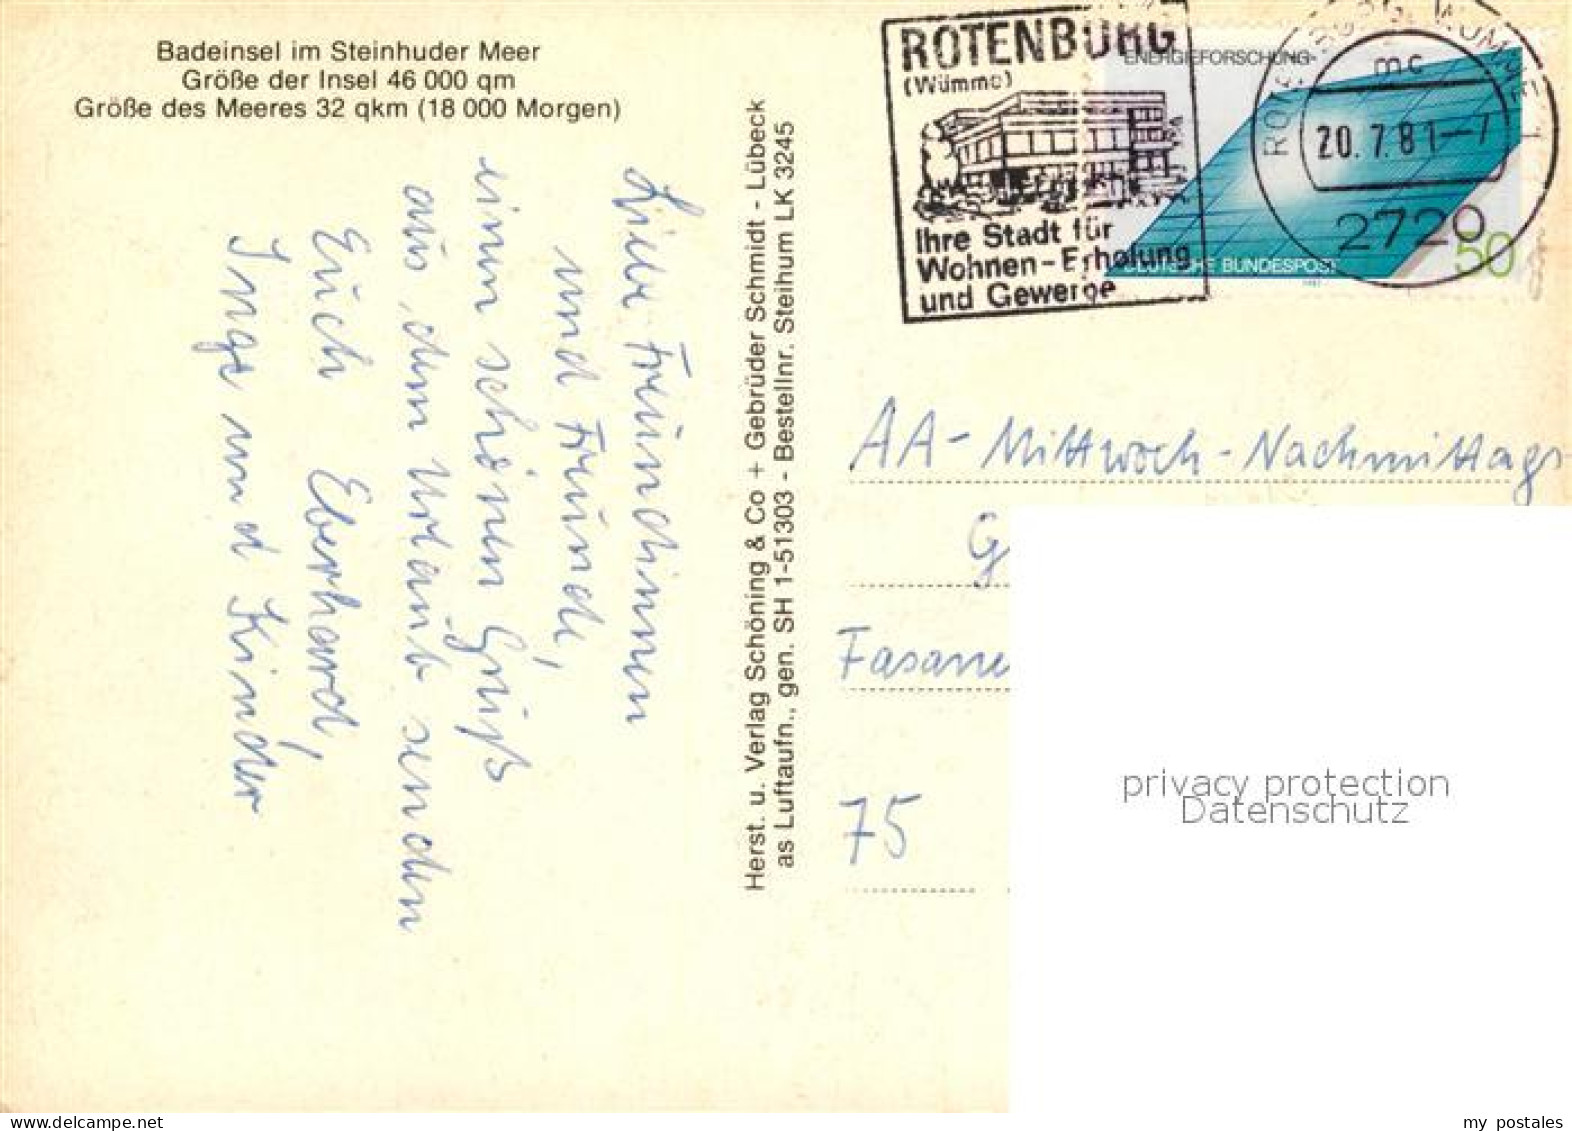 Badeinsel im Steinhuder Meer
Größe der Insel 46 000 qm
Größe des Meeres 32 qkm (18 000 Morgen)
Liebe Freundinnen
und Freunde,
einen schönen Gruß
aus dem Urlaub senden
Euch Eberhard,
Inge und Kinder
Herst. u. Verlag Schöning & Co + Gebrüder Schmidt - Lübeck
as Luftaufn., gen. SH 1-51303 - Bestellnr. Steihum LK 3245
ROTENBURG
(Wümme)
Ihre Stadt für
Wohnen-Erholung
und Gewerbe
ENERGIEFORSCHUNG
DEUTSCHE BUNDESPOST
50
mc
20.7.81-7
2720
AA-Mittwoch-Nachmittags
G
Fasane
75
privacy protection
Datenschutz
my postales